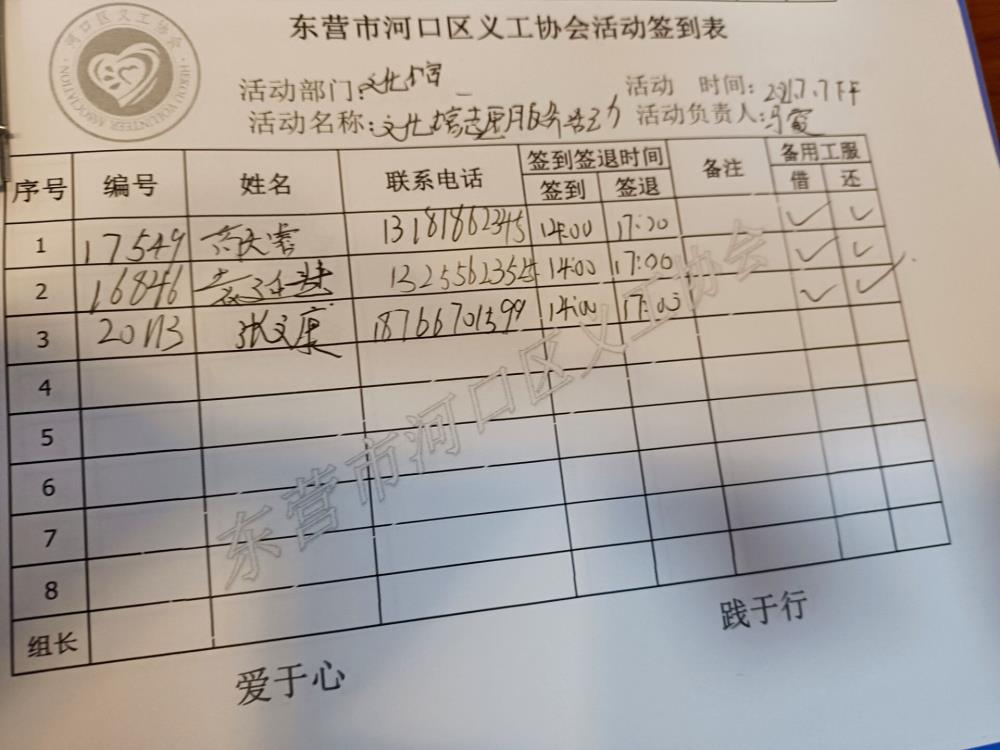 东营市河口区义工协会活动签到表
河口区义工协会
HEKOU VOLUNTEER ASSOCIATION
活动部门: 文化馆 活动 时间: 2021.7.7下午
活动名称: 文化馆志愿服务活动 活动负责人:
序号 编号 姓名 联系电话 签到签退时间 备注 备用工服
签到 签退 借 还
1 17549 13181862345 14:00 17:20 ✓ ✓
2 16846 13255623525 14:00 17:00 ✓ ✓
3 20173 张文康 18766701599 14:00 17:03 ✓ ✓
4
5
6
7
8
组长
东营市河口区义工协会
爱于心 践于行